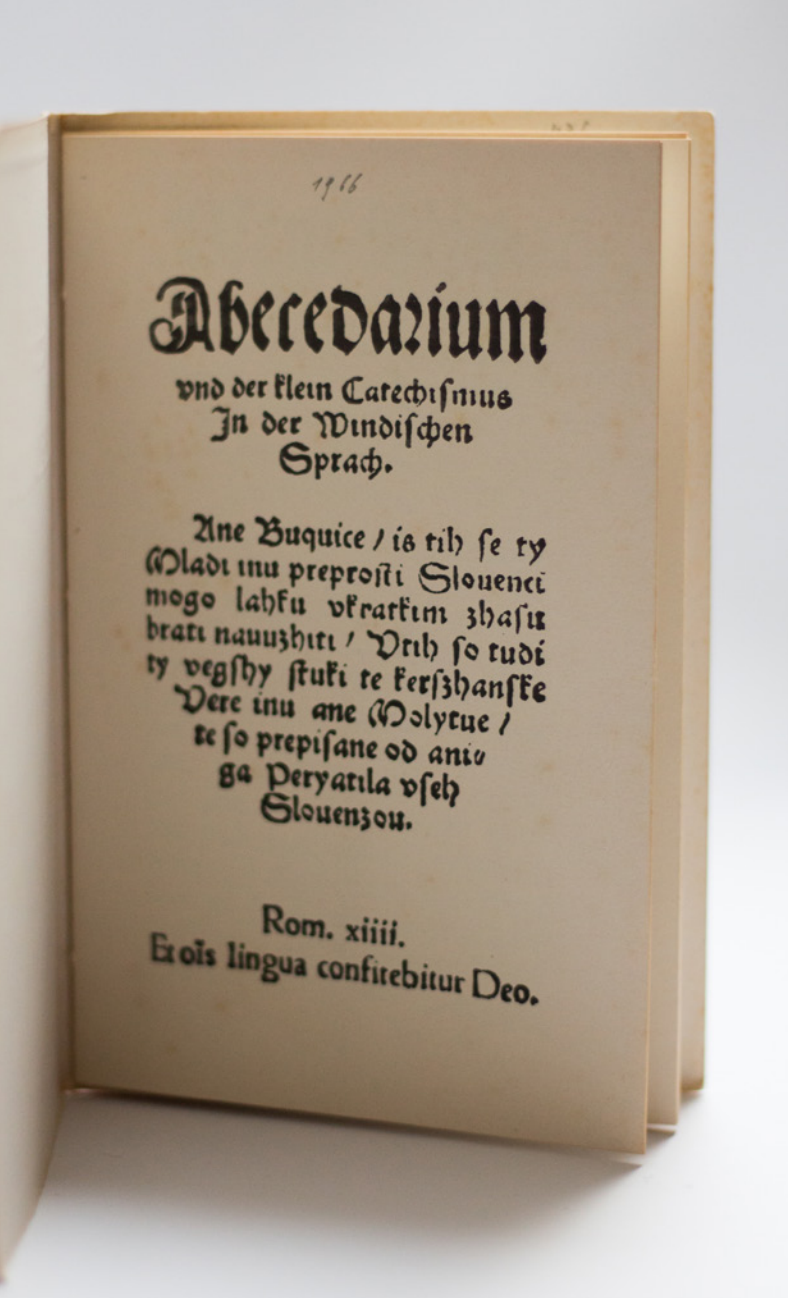 1966
Abecedarium
vnd der klein Catechiſmus
In der Windiſchen
Sprach.
Ane Buquice / is tih ſe ty
Mladi inu preproſti Slouenci
mogo lahku vkratkim zhaſu
brati nauuzhiti / Vtih ſo tudi
ty vegſhy ſtuki te kerſzhanſke
Vere inu ane Molytue /
te ſo prepiſane od aniu
ga Peryatila vſeh
Slouenzou.
Rom. xiiii.
Et oı̄s lingua confitebitur Deo.